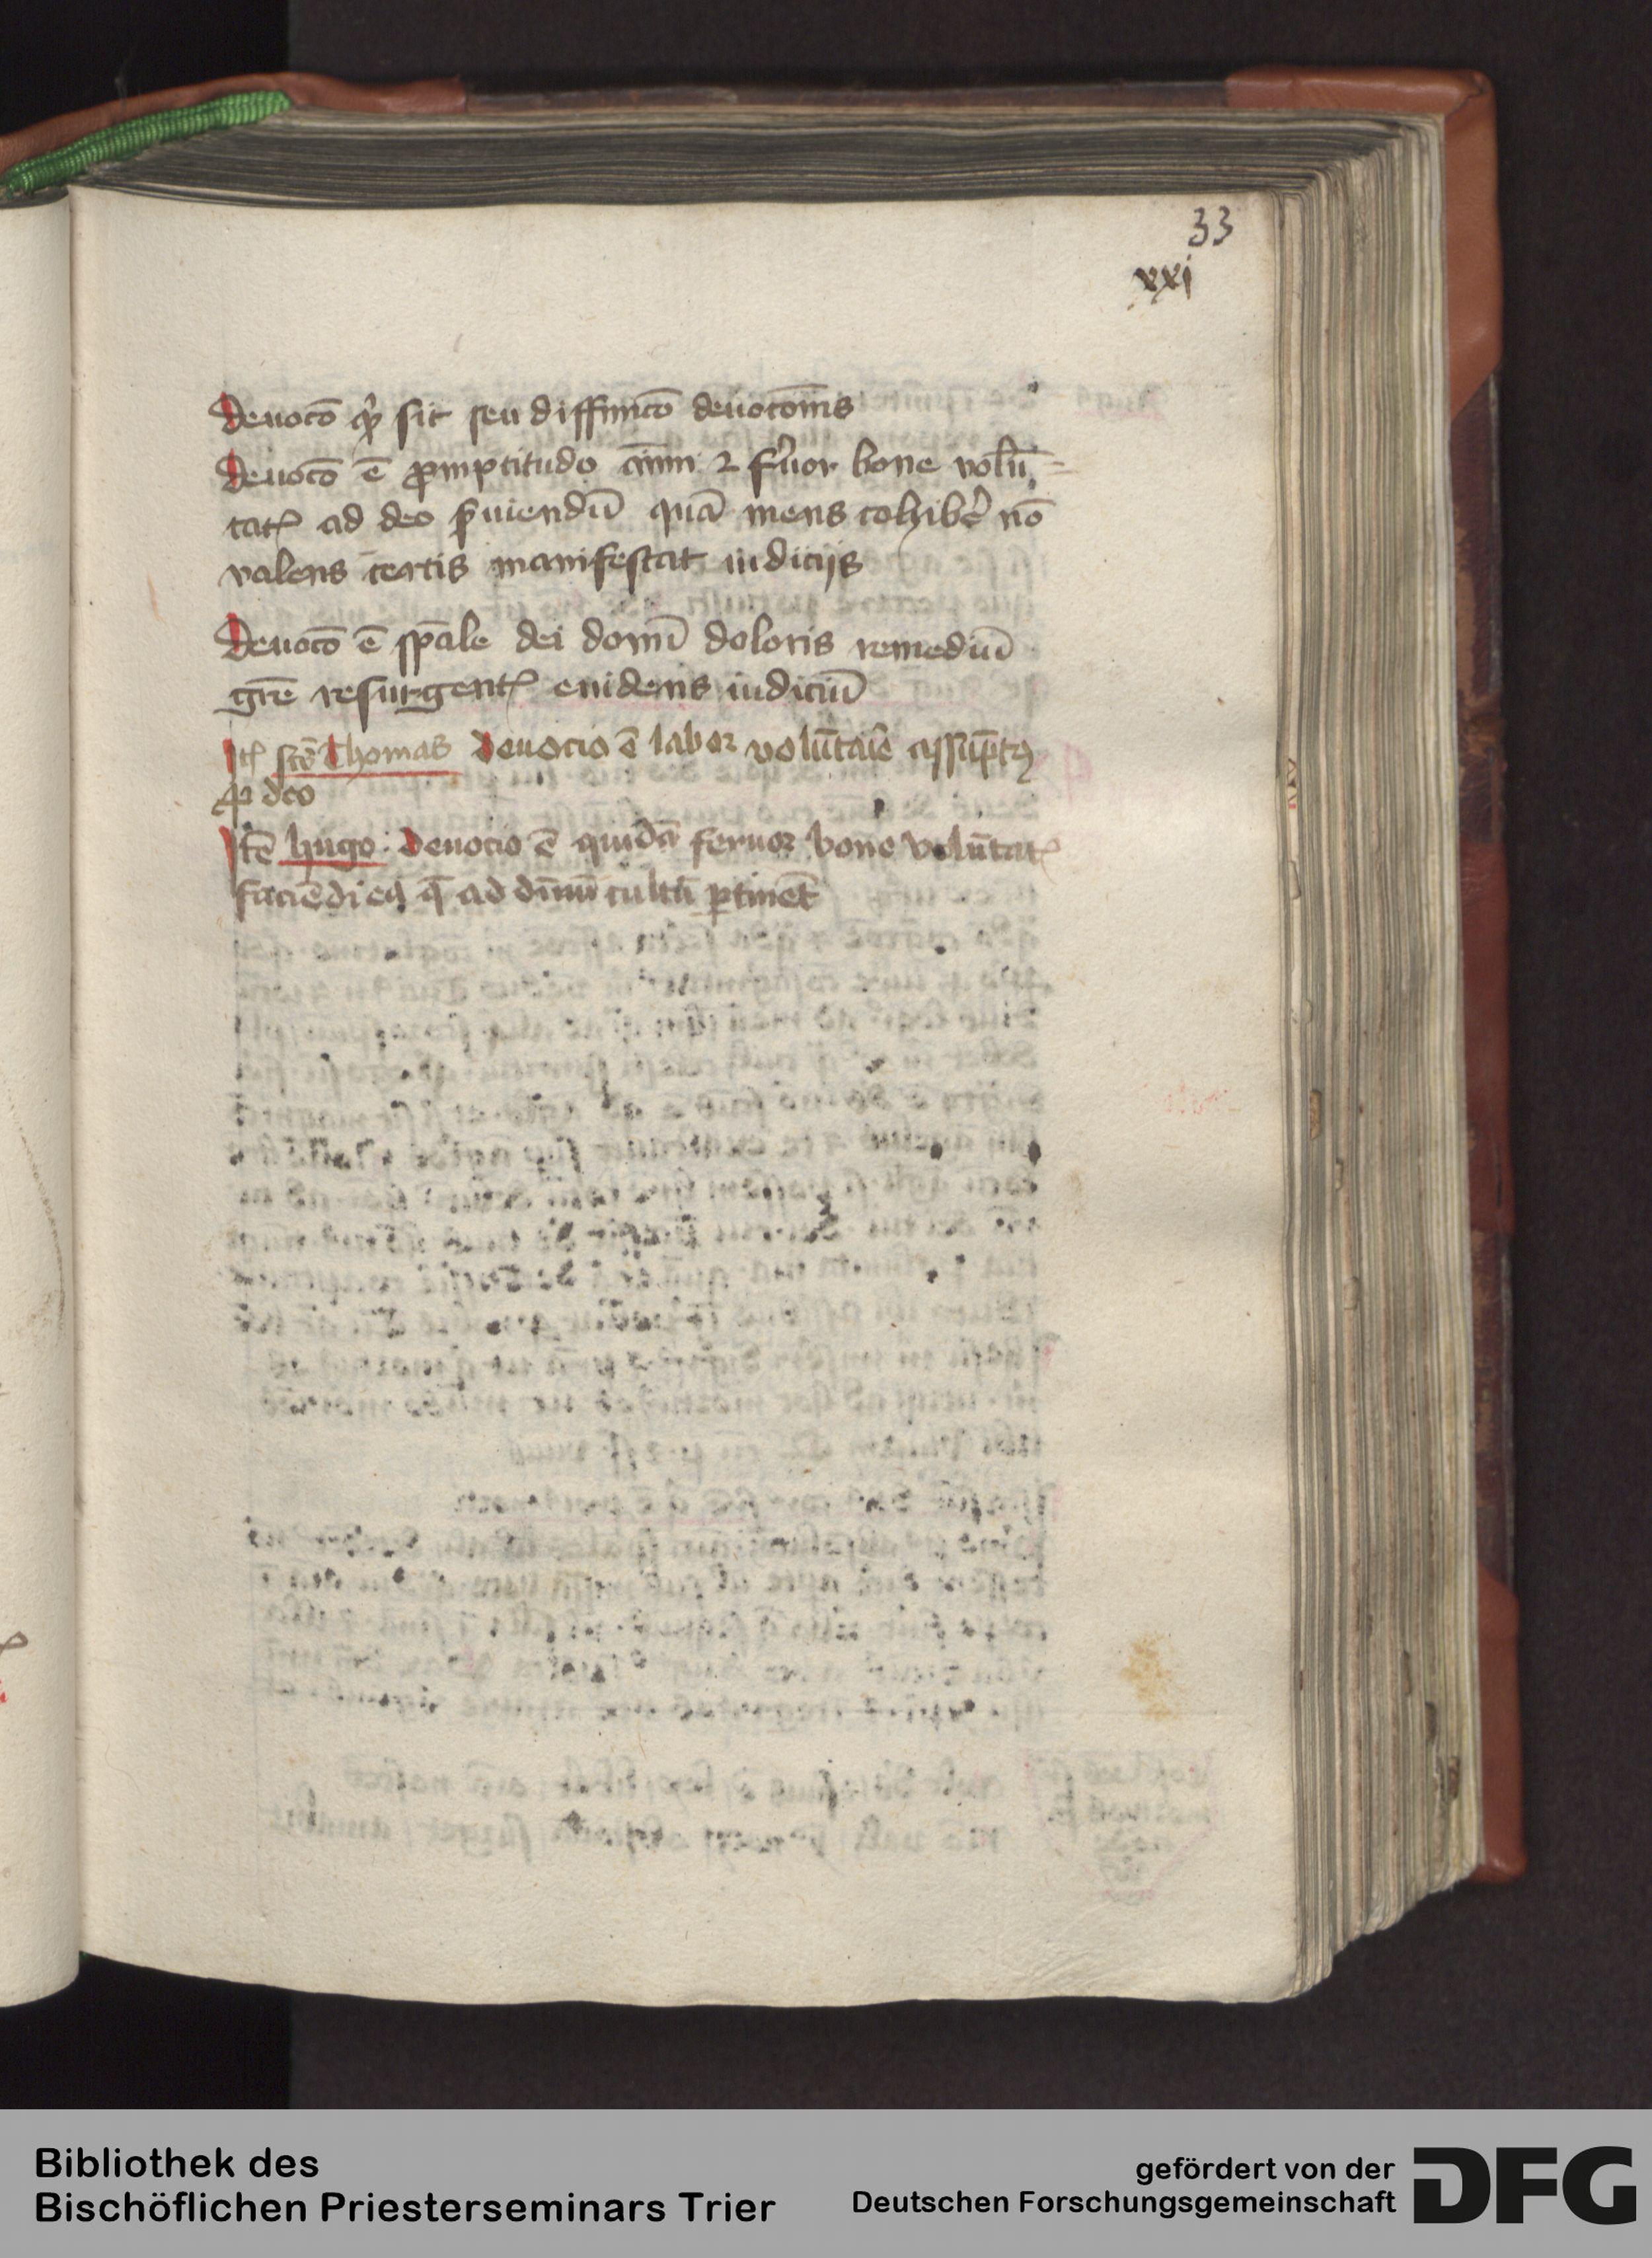 33
xxi
Deuoco͞ q͛ sit seu diffinico͞ deuoco͞nis
Deuoco͞ e͞ ꝓmptitudo a͞nimi ⁊ f͛uor bone volu͞
tatꝭ ad deo ẜuiendu͞ qua͞ mens cohibe͛ no͞
valens certis manifestat iudicijs
Deuoco͞ e͞ sp͞ale dei donu͞ doloris remediu͞
gr͞e resurgentꝭ euidens iudiciu͞
Itꝭ sc͞s Thomas Deuocio e͞ labor volu͞tarie assu͞ptꝰ
ꝓ deo
Ite͞ hugo: Deuocio e͞ quida͞ feruor bone volu͞tatꝭ
facie͞di ea q͞ ad diuinu͞ cultu͞ ꝑtine͞t
Bibliothek des
Bischöflichen Priesterseminars Trier
gefördert von der
Deutschen Forschungsgemeinschaft
DFG